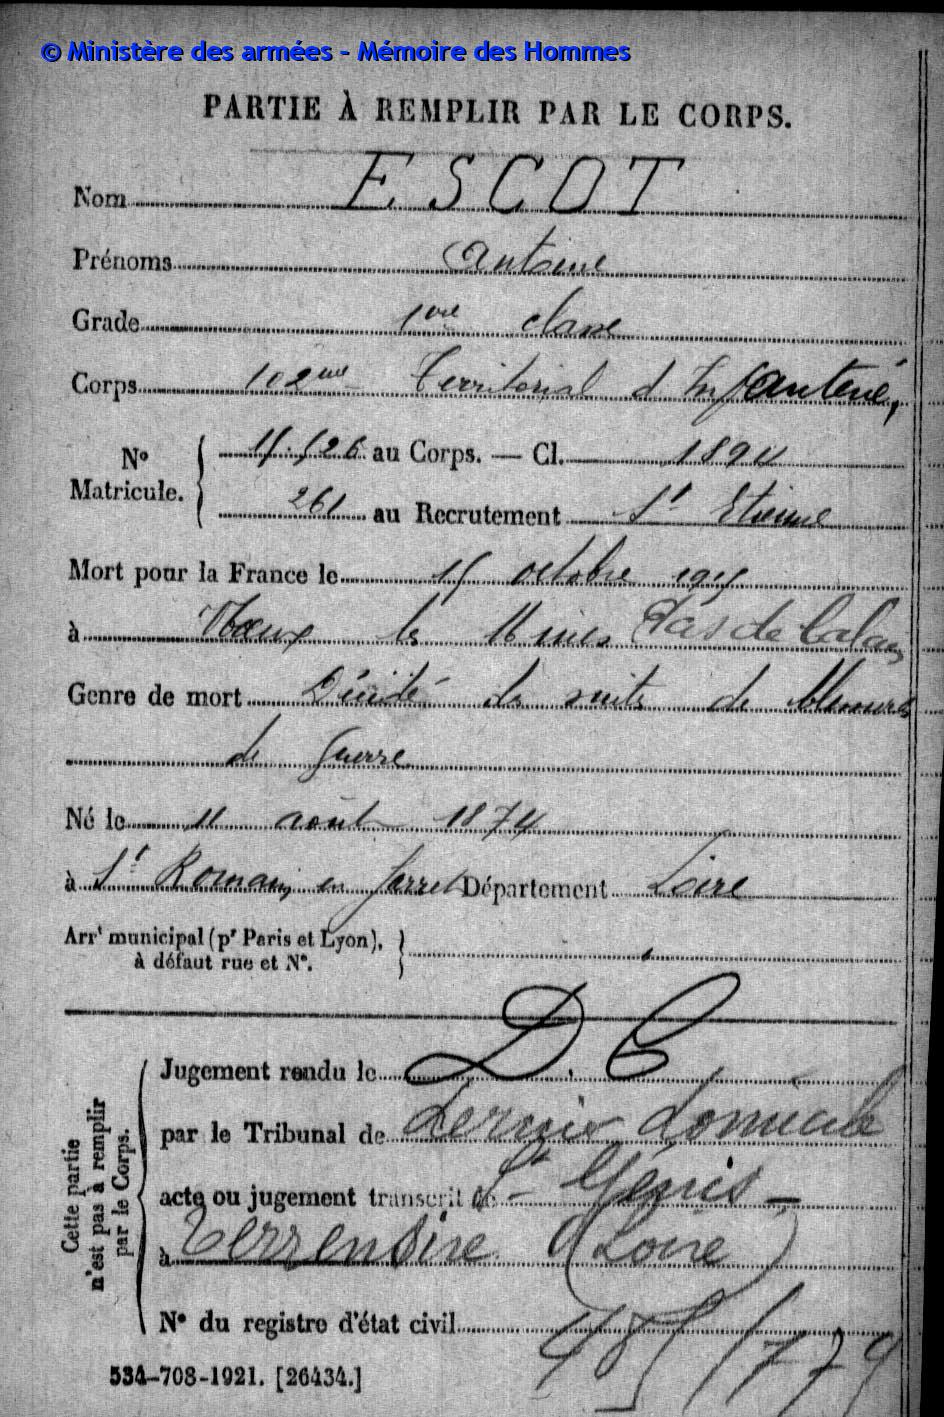 © Ministère des armées - Mémoire des Hommes
PARTIE À REMPLIR PAR LE CORPS.
Nom ESCOT
Prénoms Antoine
Grade 1ère classe
Corps 102me Territorial d'Infanterie,
No Matricule. { 15.526 au Corps. — Cl. 1894
261 au Recrutement St Etienne
Mort pour la France le 15 octobre 1915
à Noeux les Mines Pas de Calais
Genre de mort Décédé des suites de blessures
de guerre
Né le 11 août 1874
à St Romain en Jarret Département Loire
Arrt municipal (pr Paris et Lyon),
à défaut rue et No.
Cette partie n'est pas à remplir par le Corps.
Jugement rendu le D.C
par le Tribunal de Dernier domicile
acte ou jugement transcrit le St Génis-
à Terrenoire (Loire)
No du registre d'état civil
534-708-1921. [26434.]